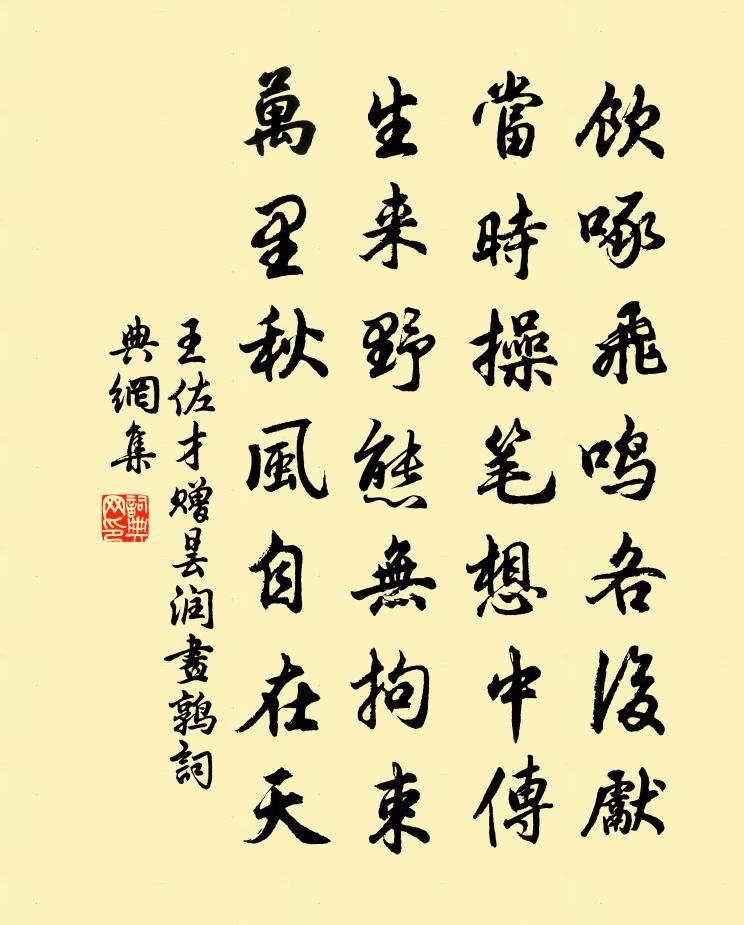 飲啄飛鳴各後獻
當時操笔想中傳
生来野態無拘束
萬里秋風自在天
王佐才贈昙润畫鶉詞
典網集
詞典网印